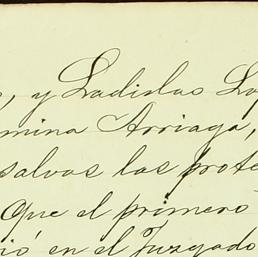 , y Ladislas Lo
mina Arriaga,
salvas las prote
Que el primero
ió en el Juzgado